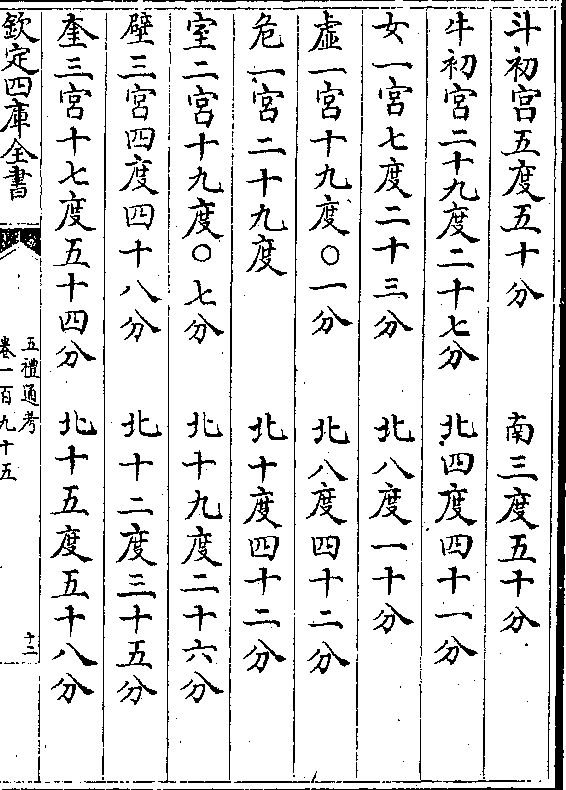 斗初宫五度五十分　南三度五十分
牛初宫二十九度二十七分　北四度四十一分
女一宫七度二十三分　北八度一十分
虚一宫十九度〇一分　北八度四十二分
危一宫二十九度　北十度四十二分
室二宫十九度〇七分　北十九度二十六分
壁三宫四度四十八分　北十二度三十五分
奎三宫十七度五十四分　北十五度五十八分
欽定四庫全書
五禮通考
卷一百九十五
十三